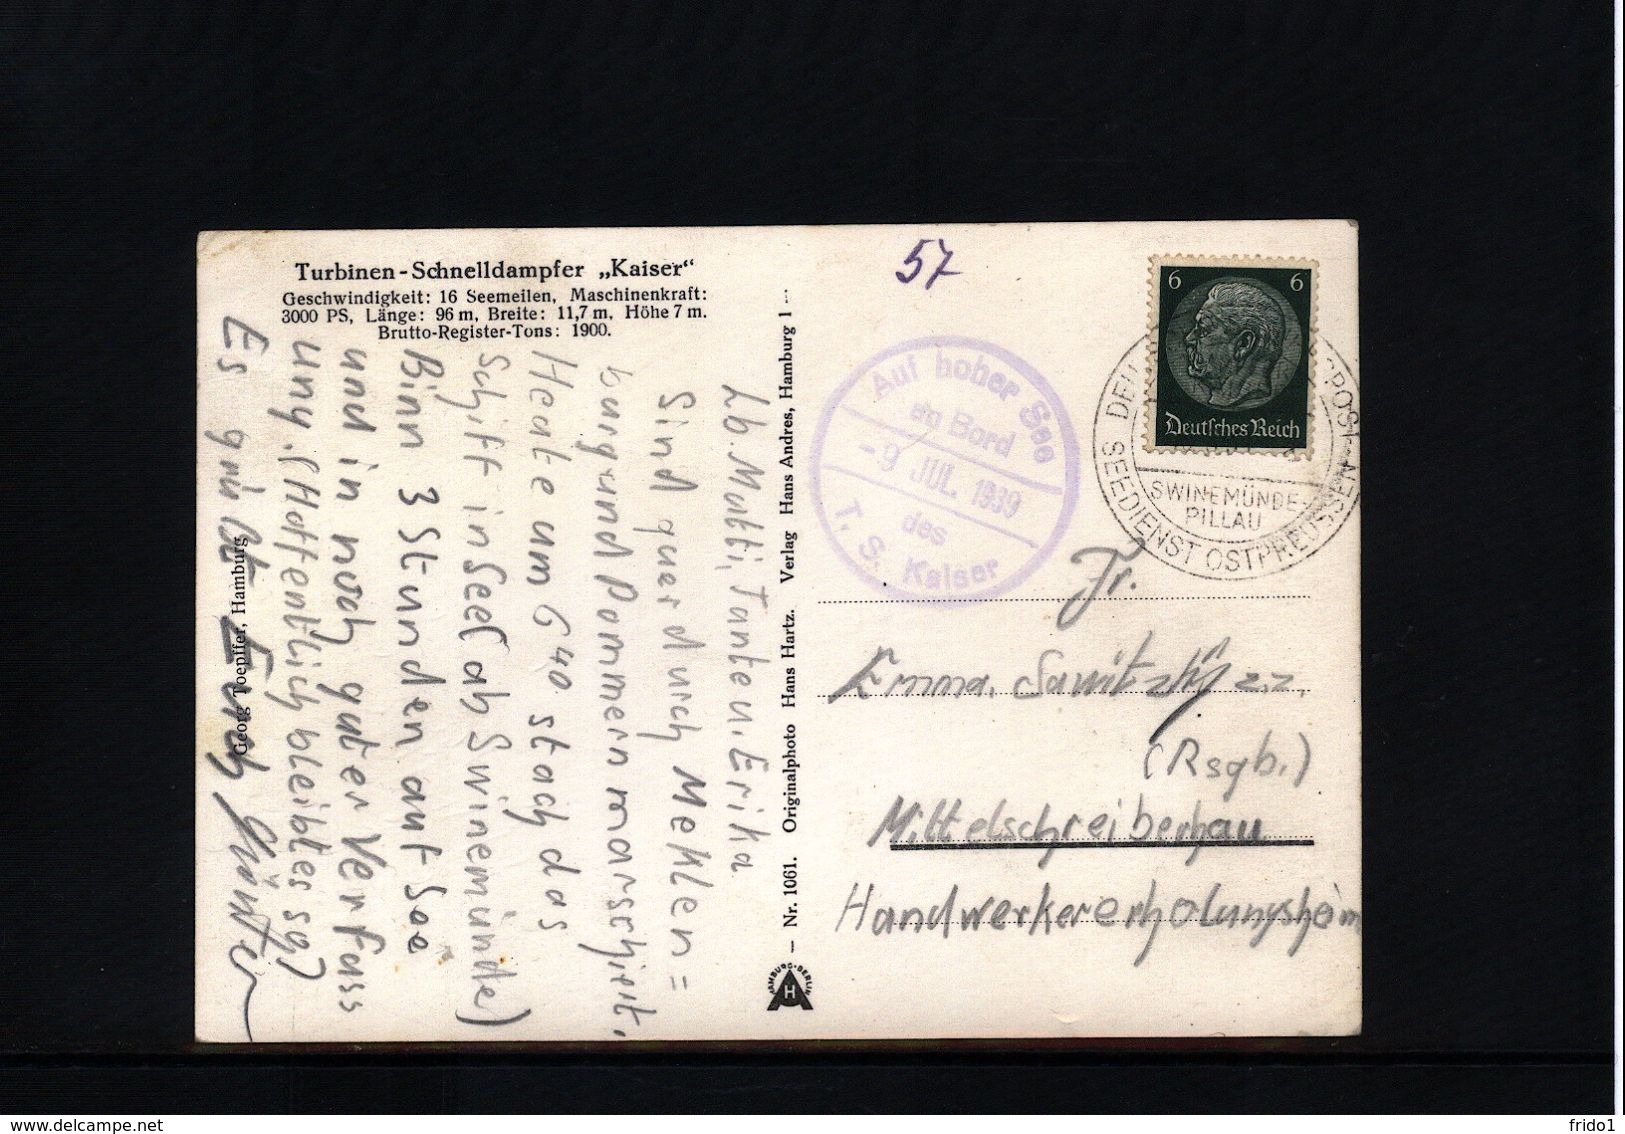 Turbinen-Schnelldampfer „Kaiser“
Geschwindigkeit: 16 Seemeilen, Maschinenkraft:
3000 PS, Länge: 96 m, Breite: 11,7 m, Höhe 7 m.
Brutto-Register-Tons: 1900.
Lb. Mutti, Tante u. Erika
Sind quer durch Meklen=
burg und Pommern marschirt.
Heute um 6 40 stach das
Schiff in See (ab Swinemünde)
Binn 3 Stunden auf See
und in noch guter Verfass
ung. (Hoffentlich bleibt es so?)
Es grüßt Euch Günter
Georg Toepffer, Hamburg
– Nr. 1061. Originalphoto Hans Hartz. Verlag Hans Andres, Hamburg 1 –
HAMBURG-BERLIN
H
57
Auf hoher See
an Bord
- 9 JUL. 1939
des
T. S. Kaiser
6 6
Deutsches Reich
SWINEMÜNDE-
PILLAU
SEEDIENST OSTPREUSSEN
Fr.
Emma z.z.
(Rsgb.)
Mittelschreiberhau
Handwerkererholungsheim
delcampe.net
frido1